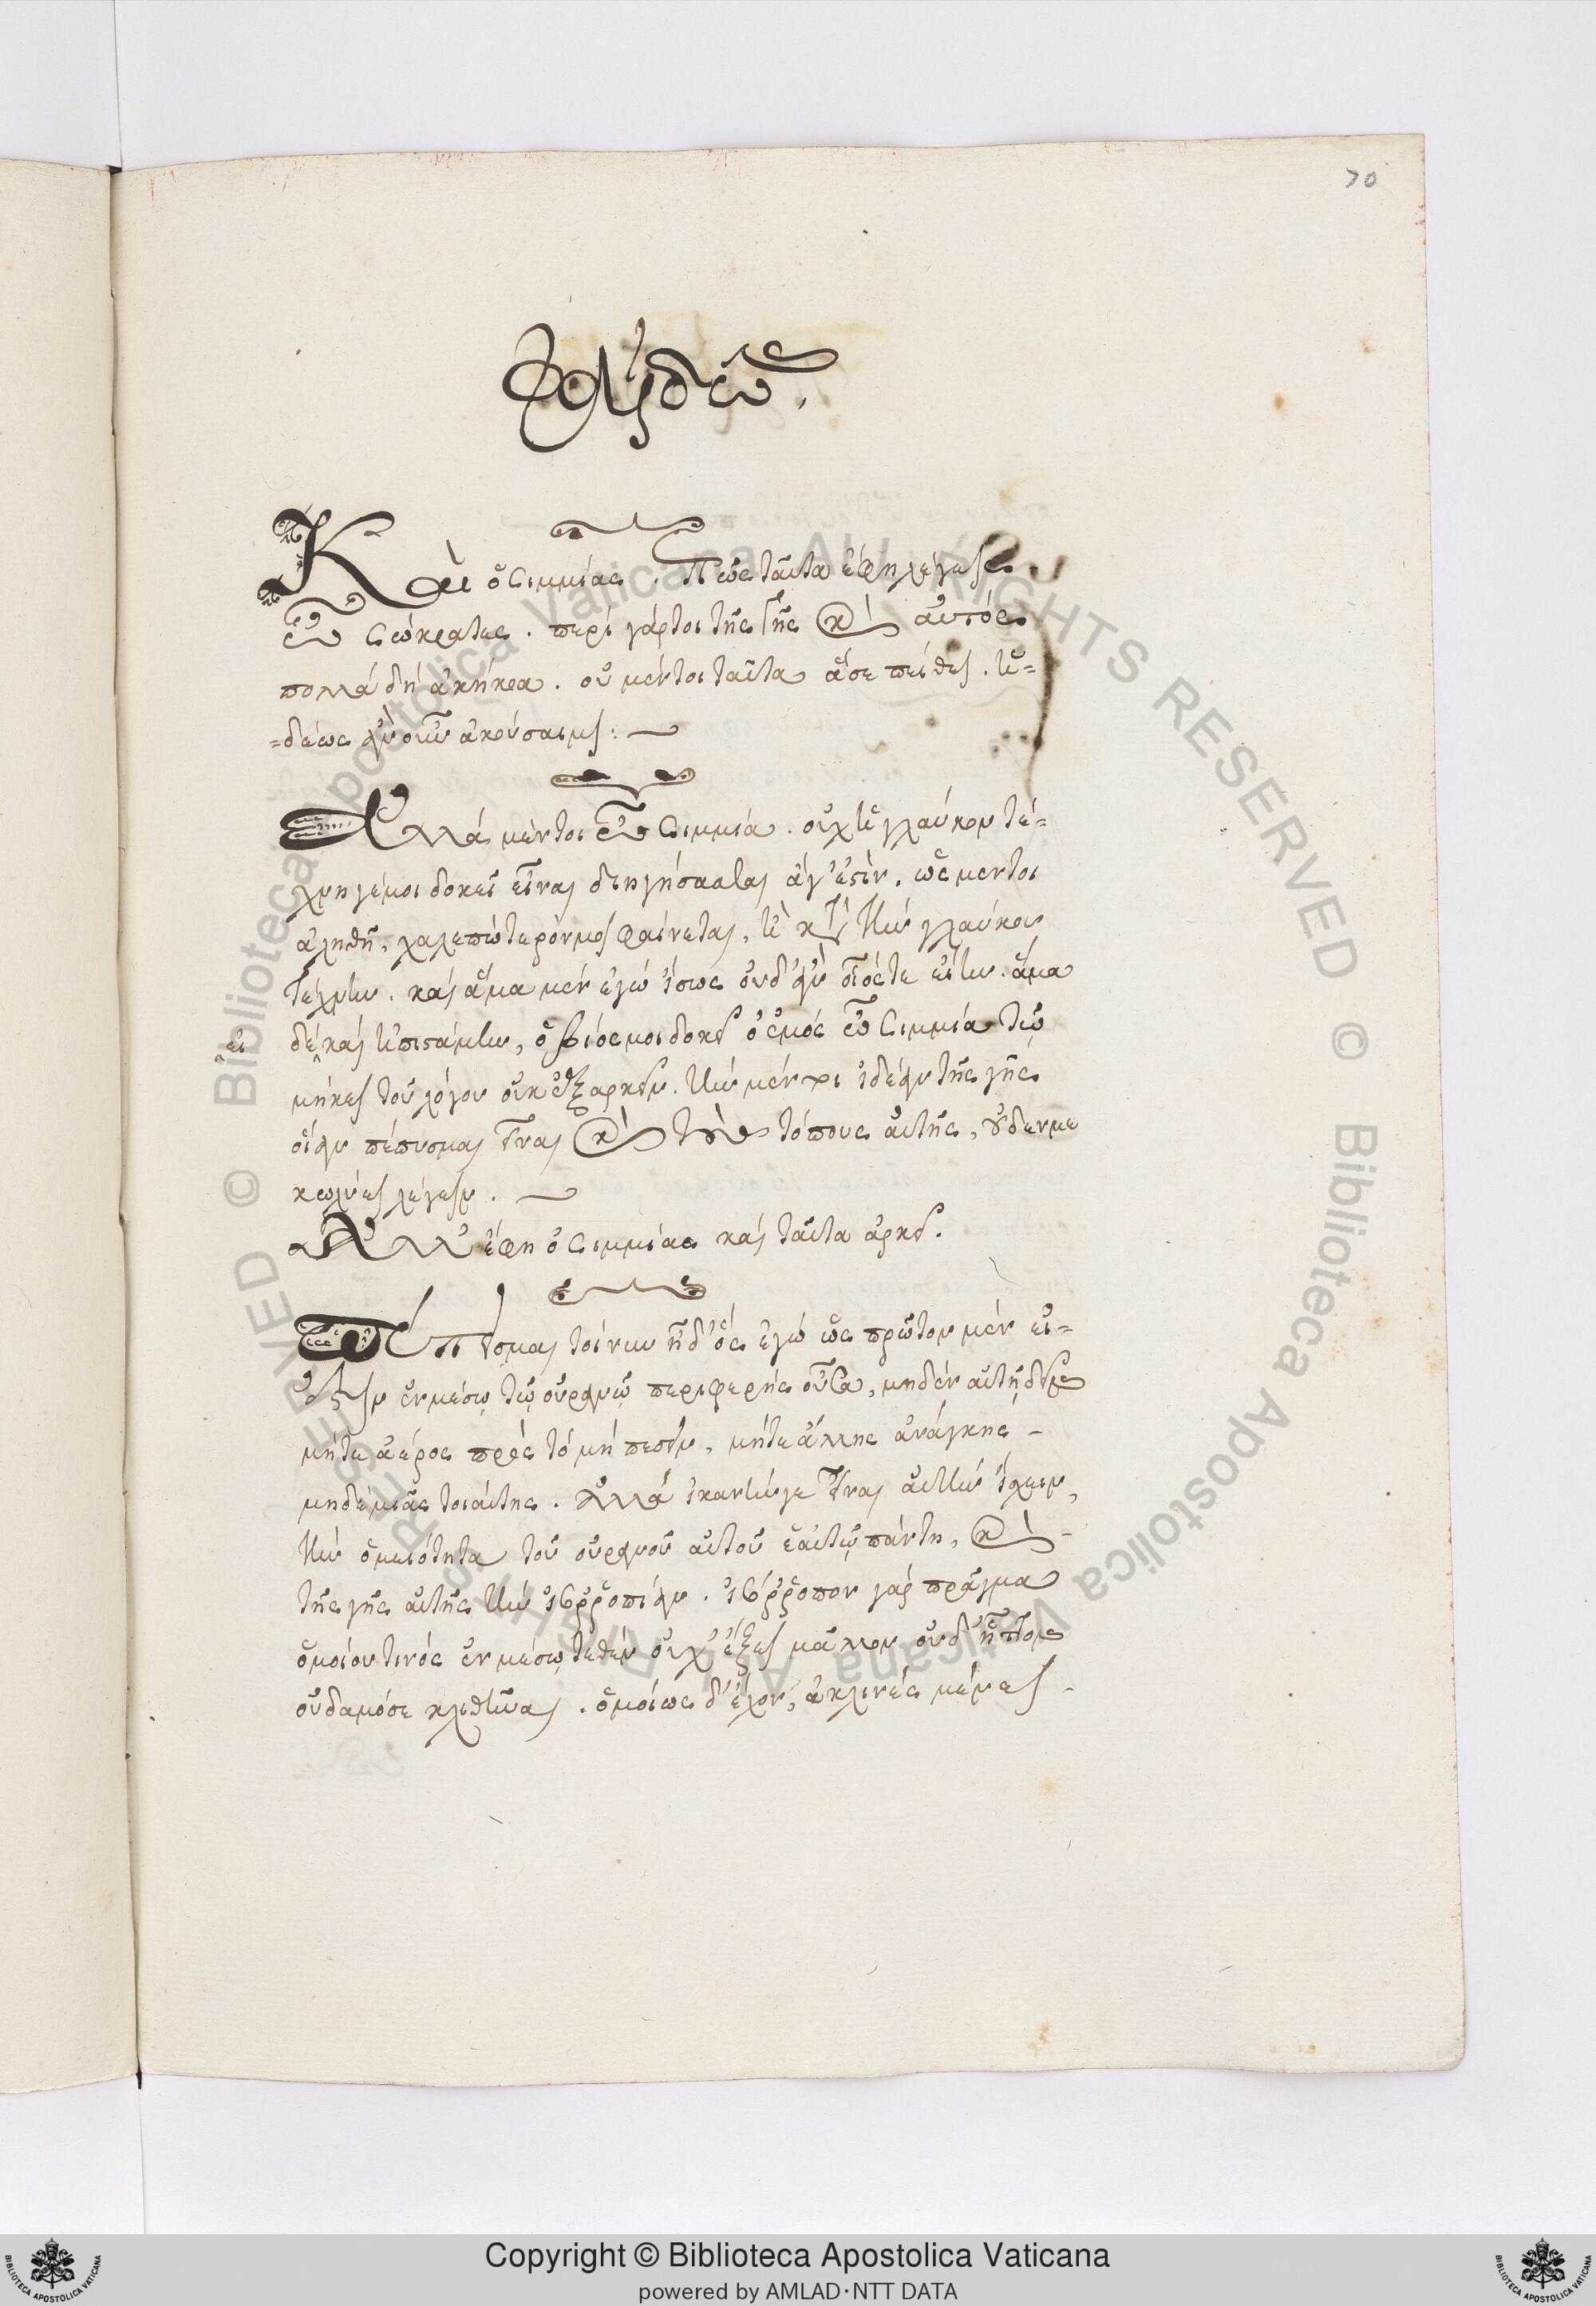 70
Φαίδων.
Καὶ ὁ Σιμμίας. Πῶς ταῦτα ἔφη λέγεις
ὦ Σώκρατες. περὶ γάρτοι τῆς γῆς καὶ αὐτὸς
πολλὰ δὴ ἀκήκοα. οὐ μέντοι ταῦτα ἅ σε πείθει. ἡ=
=δέως ἂν οὖν ἀκούσαιμι: —
Ἀλλὰ μέντοι ὦ Σιμμία. οὐχ ἡ γλαύκου τέ=
χνη γέμοι δοκεῖ εἶναι διηγήσασθαι ἅ γ' ἐστὶν. ὡς μέντοι
ἀληθῆ, χαλεπώτερόν μοι φαίνεται, ἢ κατὰ τὴν γλαύκου
τέχνην. καὶ ἅμα μὲν ἐγὼ ἴσως οὐδ' ἂν οἷός τε εἴην. ἅμα
εἰ
δὲ καὶ ἠπιστάμην, ὁ βίος μοι δοκεῖ ὁ ἐμὸς ὦ Σιμμία τῷ
μήκει τοῦ λόγου οὐκ ἐξαρκεῖν. τὴν μέν τοι ἰδέαν τῆς γῆς
οἵαν πέπεισμαι εἶναι καὶ τοὺς τόπους αὐτῆς, οὐδέν με
κωλύει λέγειν. —
Ἀλλ' ἔφη ὁ Σιμμίας καὶ ταῦτα ἀρκεῖ.
Πέπεισμαι τοίνυν ἦ δ' ὃς ἐγὼ ὡς πρῶτον μὲν εἰ=
ἔστιν ἐν μέσῳ τῷ οὐρανῷ περιφερὴς οὖσα, μηδὲν αὐτῇ δεῖν
μήτε ἀέρος πρὸς τὸ μὴ πεσεῖν, μήτε ἄλλης ἀνάγκης -
μηδεμιᾶς τοιαύτης. ἀλλὰ ἱκανήν γε εἶναι αὐτὴν ἴσχειν,
τὴν ὁμοιότητα τοῦ οὐρανοῦ αὐτοῦ ἑαυτῷ πάντη, καὶ -
τῆς γῆς αὐτῆς τὴν ἰσοῤῥοπίαν. ἰσόῤῥοπον γὰρ πρᾶγμα
ὁμοίου τινὸς ἐν μέσῳ τεθὲν οὐχ' ἕξει μᾶλλον οὐδ' ἧττον
οὐδαμόσε κλιθῆναι. ὁμοίως δ' ἔχον, ἀκλινὲς μένει -
Copyright © Biblioteca Apostolica Vaticana
powered by AMLAD・NTT DATA